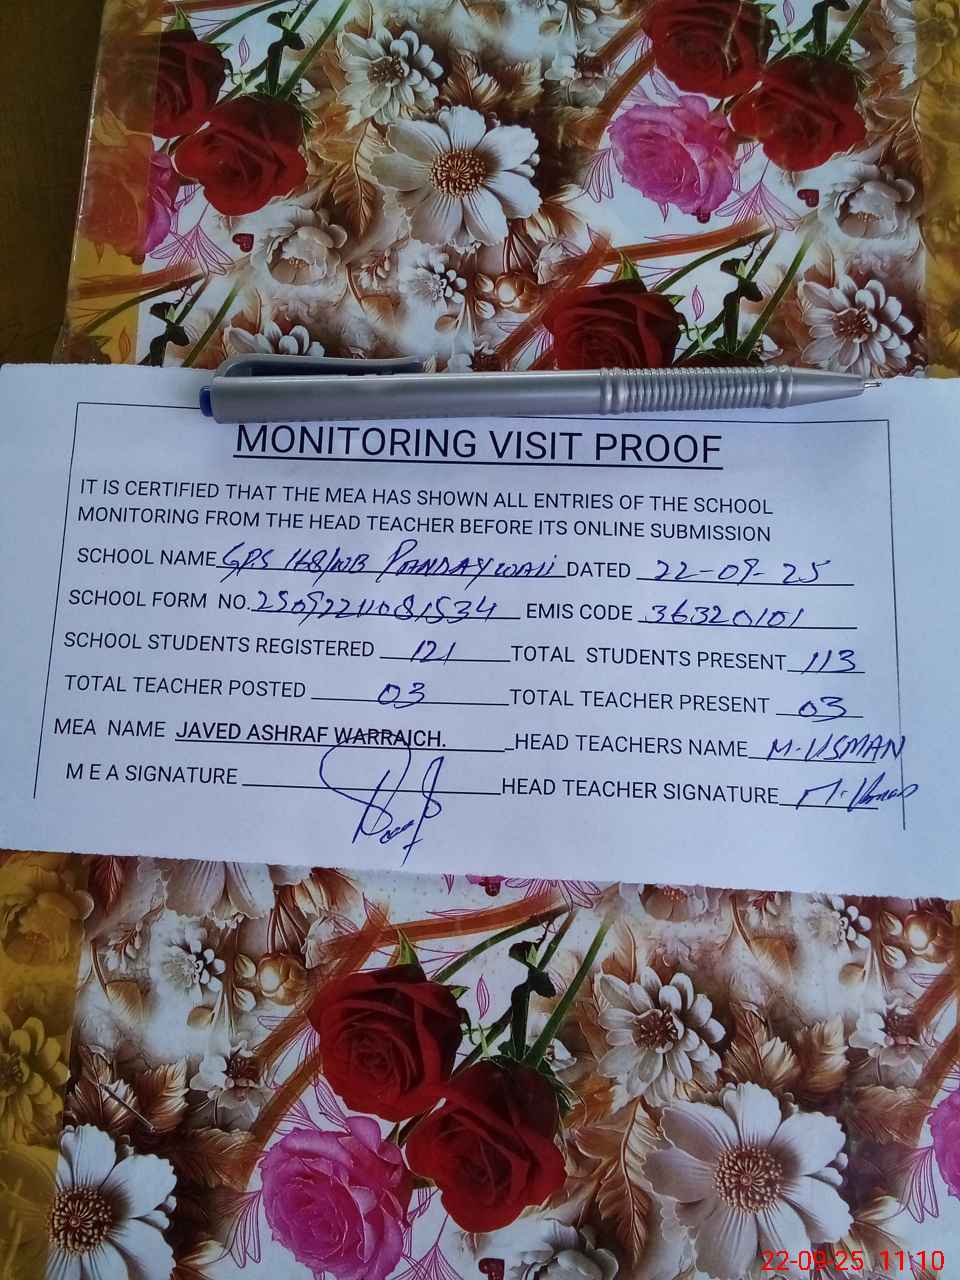 MONITORING VISIT PROOF
IT IS CERTIFIED THAT THE MEA HAS SHOWN ALL ENTRIES OF THE SCHOOL
MONITORING FROM THE HEAD TEACHER BEFORE ITS ONLINE SUBMISSION
SCHOOL NAME GPS 168/WB PANDAYWALI DATED 22-09-25
SCHOOL FORM NO. 25092211081534 EMIS CODE 36320101
SCHOOL STUDENTS REGISTERED 121 TOTAL STUDENTS PRESENT 113
TOTAL TEACHER POSTED 03 TOTAL TEACHER PRESENT 03
MEA NAME JAVED ASHRAF WARRAICH. HEAD TEACHERS NAME M. USMAN
M E A SIGNATURE HEAD TEACHER SIGNATURE M. Usman
22-09-25 11:10